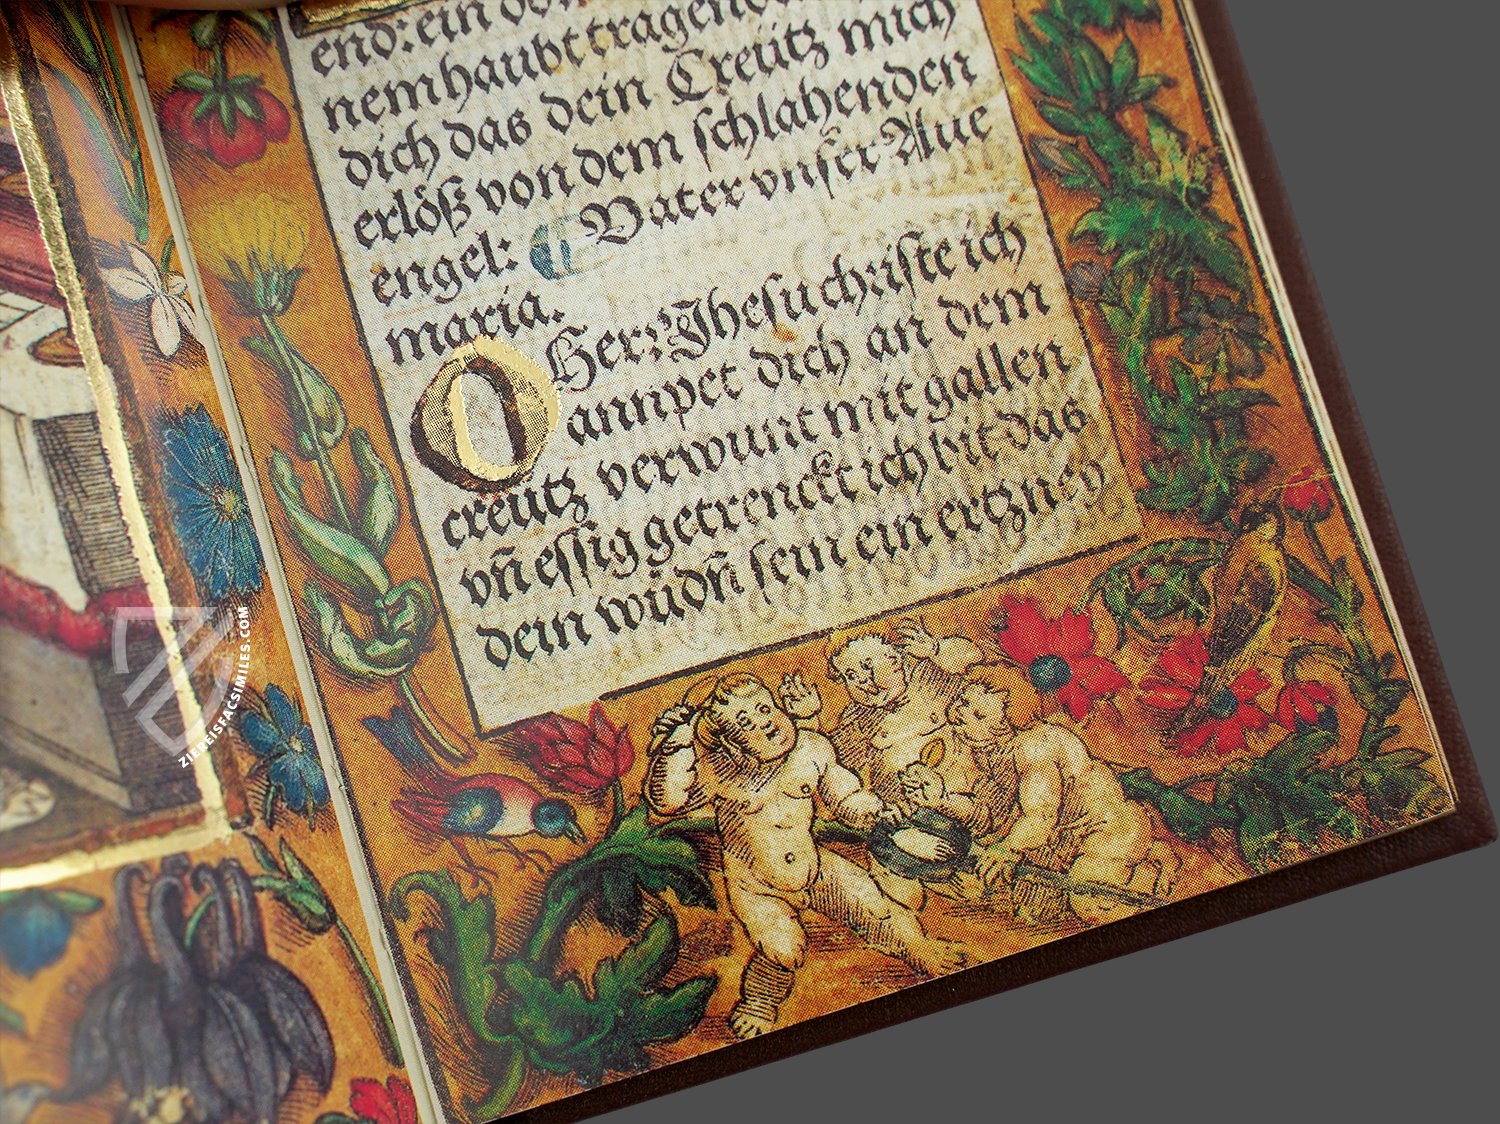 end: ein
nemhaubt tragend
dich das dein Creütz mich
erlöß von dem schlahenden
engel: Vater vnser Aue
maria.
O Her: Jhesu christe ich
annpet dich an dem
creütz verwunt mit gallen
vn̄ essig getrenckt ich bit das
dein wūdn̄ sein ein ertzney
ZIEREISFACSIMILES.COM